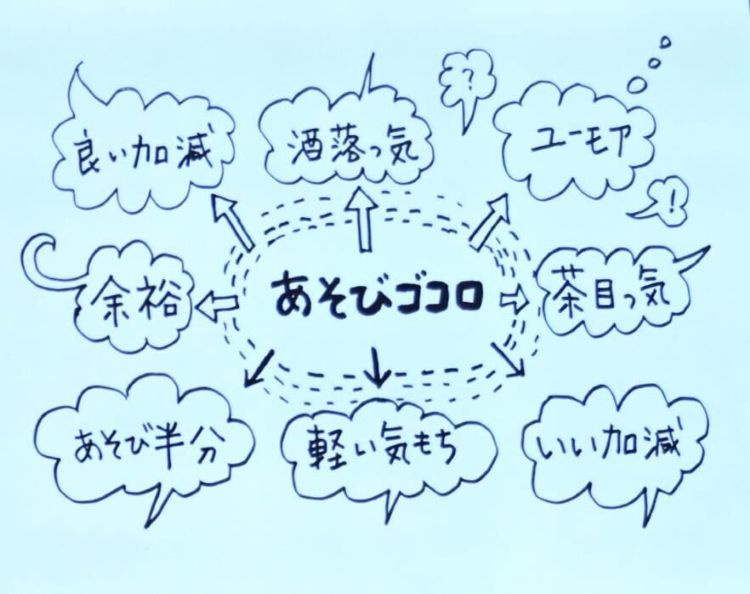 良い加減
洒落っ気
?
ユーモア
!
余裕
あそびゴコロ
茶目っ気
あそび半分
軽い気もち
いい加減